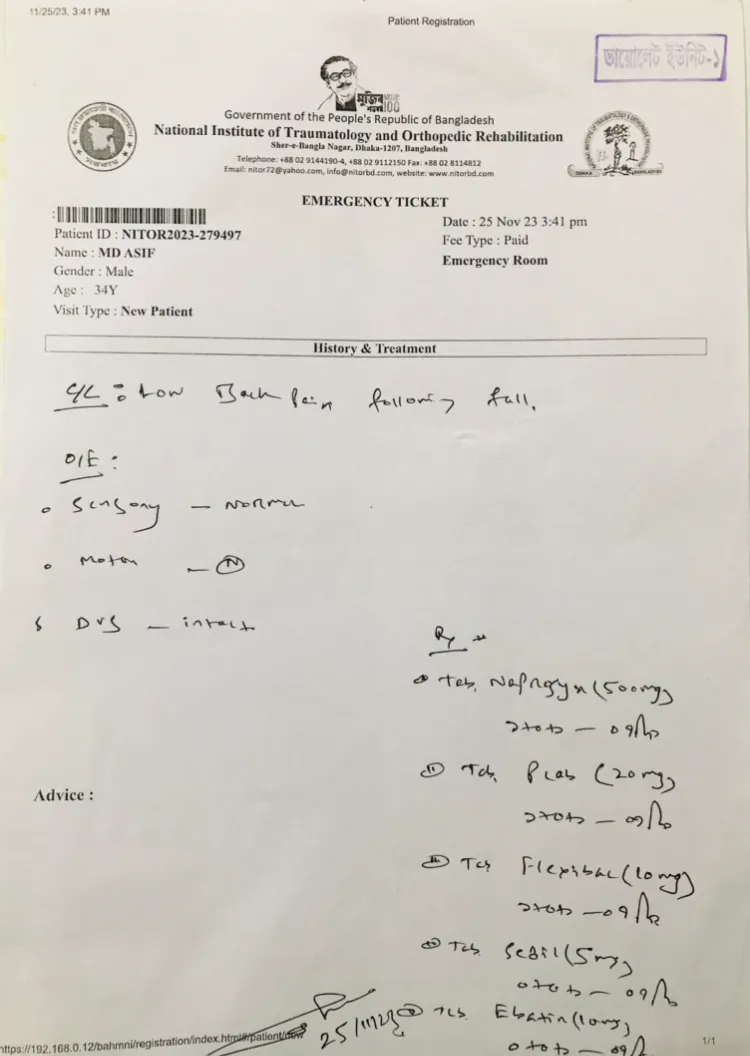 11/25/23, 3:41 PM
Patient Registration
ভায়োলেট ইউনিট-১
মুজিব
100
Government of the People's Republic of Bangladesh
National Institute of Traumatology and Orthopedic Rehabilitation
Sher-e-Bangla Nagar, Dhaka-1207, Bangladesh
Telephone: +88 02 9144190-4, +88 02 9112150 Fax: +88 02 8114812
Email: nitor72@yahoo.com, info@nitorbd.com, website: www.nitorbd.com
EMERGENCY TICKET
Patient ID : NITOR2023-279497
Name : MD ASIF
Gender : Male
Age : 34Y
Visit Type : New Patient
Date : 25 Nov 23 3:41 pm
Fee Type : Paid
Emergency Room
History & Treatment
C/C : Low Back Pain following fall.
O/E :
Sensory - Normal
Motor - N
DVS - intact
Rx
Tab. Naproxyn (500mg)
১+০+১ - ০৭
Tab. PLab (20mg)
১+০+১ - ০৭
Tab Flexibac (10mg)
১+০+১ - ০৭
Tab Sedil (5mg)
০+০+১ - ০৭
Tab Ebatin (10mg)
০+০+১ - ০৭
Advice :
25/11/23
https://192.168.0.12/bahmni/registration/index.html#/patient/new
1/1